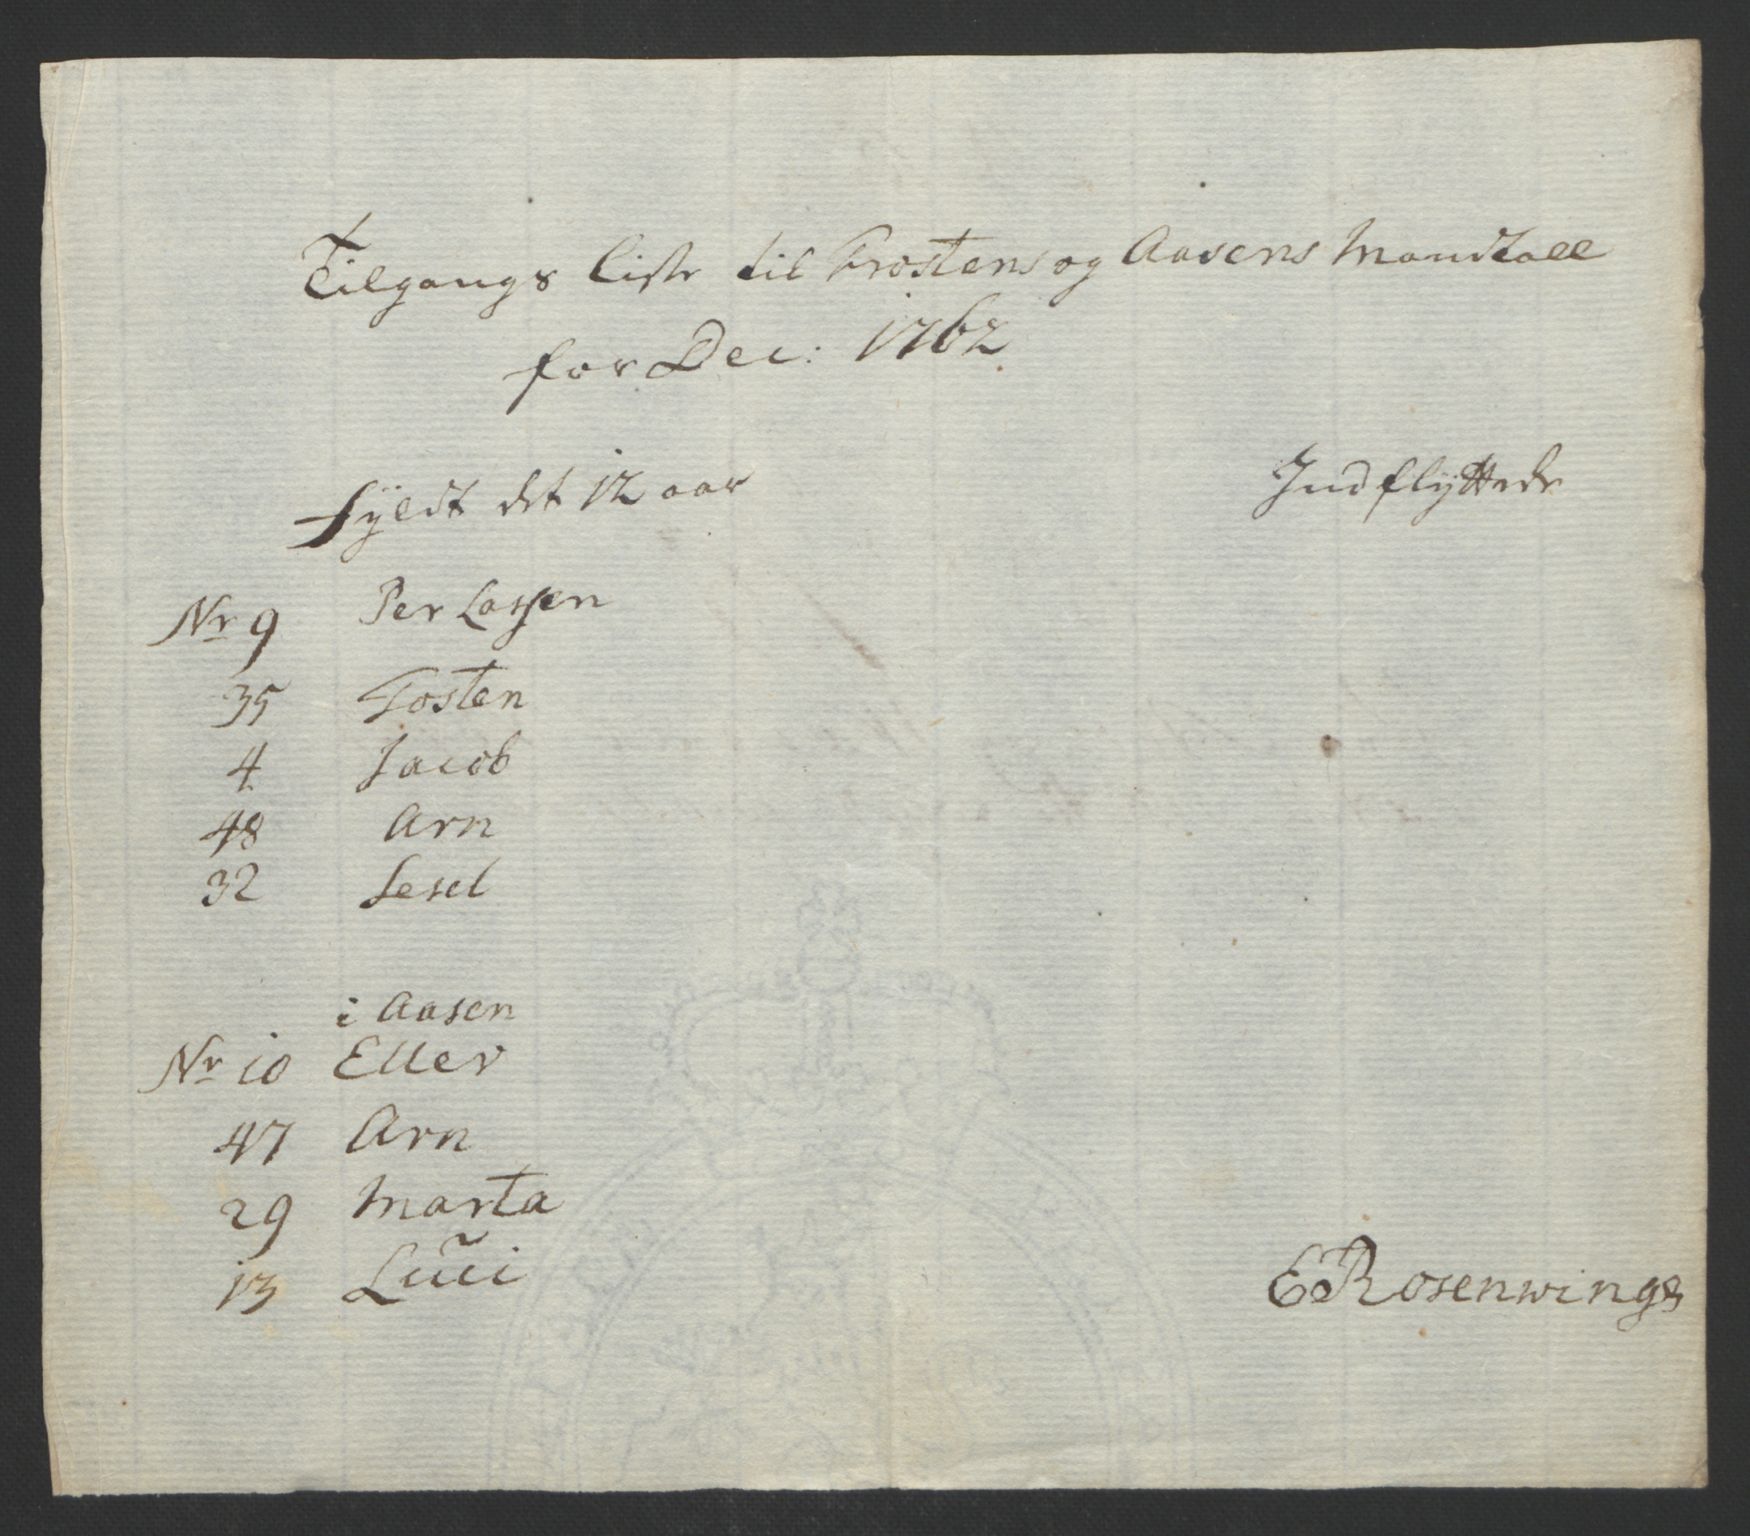 Tilgangs Liste til Frostens og Aasens Mandtall
for Dec: 1762
fyldt det 12 aar
Indflyttede
Nr 9 Per Lassen
35 Tosten
4 Jacob
48 Arn
32 Sesel
i Aasen
Nr 10 Eller
47 Arn
29 Marta
13 Luci
E Rosenwinge